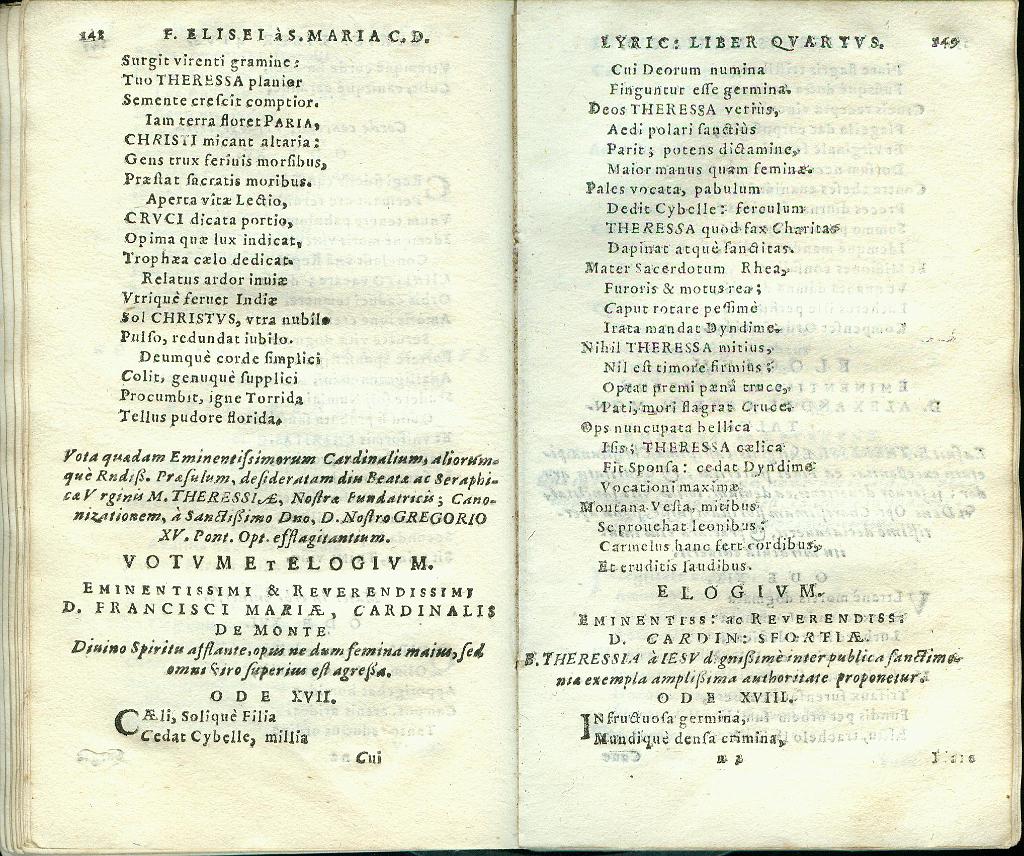 148 F. ELISEI à S. MARIA C. D.
Surgit virenti gramine:
Tuo THERESSA planior
Semente crescit comptior.
Iam terra floret PARIA,
CHRISTI micant altaria:
Gens trux feriuis morsibus,
Præstat sacratis moribus.
Aperta vitæ Lectio,
CRVCI dicata portio,
Opima quæ lux indicat,
Trophæa cælo dedicat.
Relatus ardor inuiæ
Vtriquè feruet Indiæ
Sol CHRISTVS, vtra nubila
Pulso, redundat iubilo.
Deumquè corde simplici
Colit, genuquè supplici
Procumbit, igne Torrida
Tellus pudore florida.
Vota quædam Eminentissimorum Cardinalium, aliorum-
què Rndiss. Præsulum, desideratam diu Beatæ ac Seraphi-
cæ Virginis M. THERESSIÆ, Nostræ Fundatricis; Cano-
nizationem, à Sanctissimo Dno, D. Nostro GREGORIO
XV. Pont. Opt. efflagitantium.
VOTVM ET ELOGIVM.
EMINENTISSIMI & REVERENDISSIMI
D. FRANCISCI MARIÆ, CARDINALIS
DE MONTE
Diuino Spiritu afflante, opus ne dum femina maius, sed
omni Viro superius est agressa.
ODE XVII.
CÆli, Soliquè Filia
Cedat Cybelle, millia
Cui
LYRIC: LIBER QVARTVS. 149
Cui Deorum numina
Finguntur esse germina.
Deos THERESSA veriùs,
Aedi polari sanctiùs
Parit; potens dictamine,
Maior manus quam feminæ.
Pales vocata, pabulum
Dedit Cybelle: ferculum
THERESSA quod fax Charitas
Dapinat atquè sanctitas.
Mater Sacerdotum Rhea,
Furoris & motus rea;
Caput rotare pessimè
Irata mandat Dyndime.
Nihil THERESSA mitius,
Nil est timore firmius;
Optat premi pæna truce,
Pati, mori flagrat Cruce.
Ops nuncupata bellica
Isis; THERESSA cælica
Fit Sponsa: cedat Dyndime
Vocationi maximæ.
Montana Vesta, mitibus
Se prouehat leonibus:
Carmelus hanc fert cordibus,
Et eruditis laudibus.
ELOGIVM.
EMINENTISS: ac REVERENDISS:
D. CARDIN: SFORTIÆ.
B. THERESSIA à IESV dignissimè inter publica sanctimo-
nia exempla amplissima authoritate proponetur.
ODE XVIII.
INfructuosa germina,
Mundiquè densa crimina,